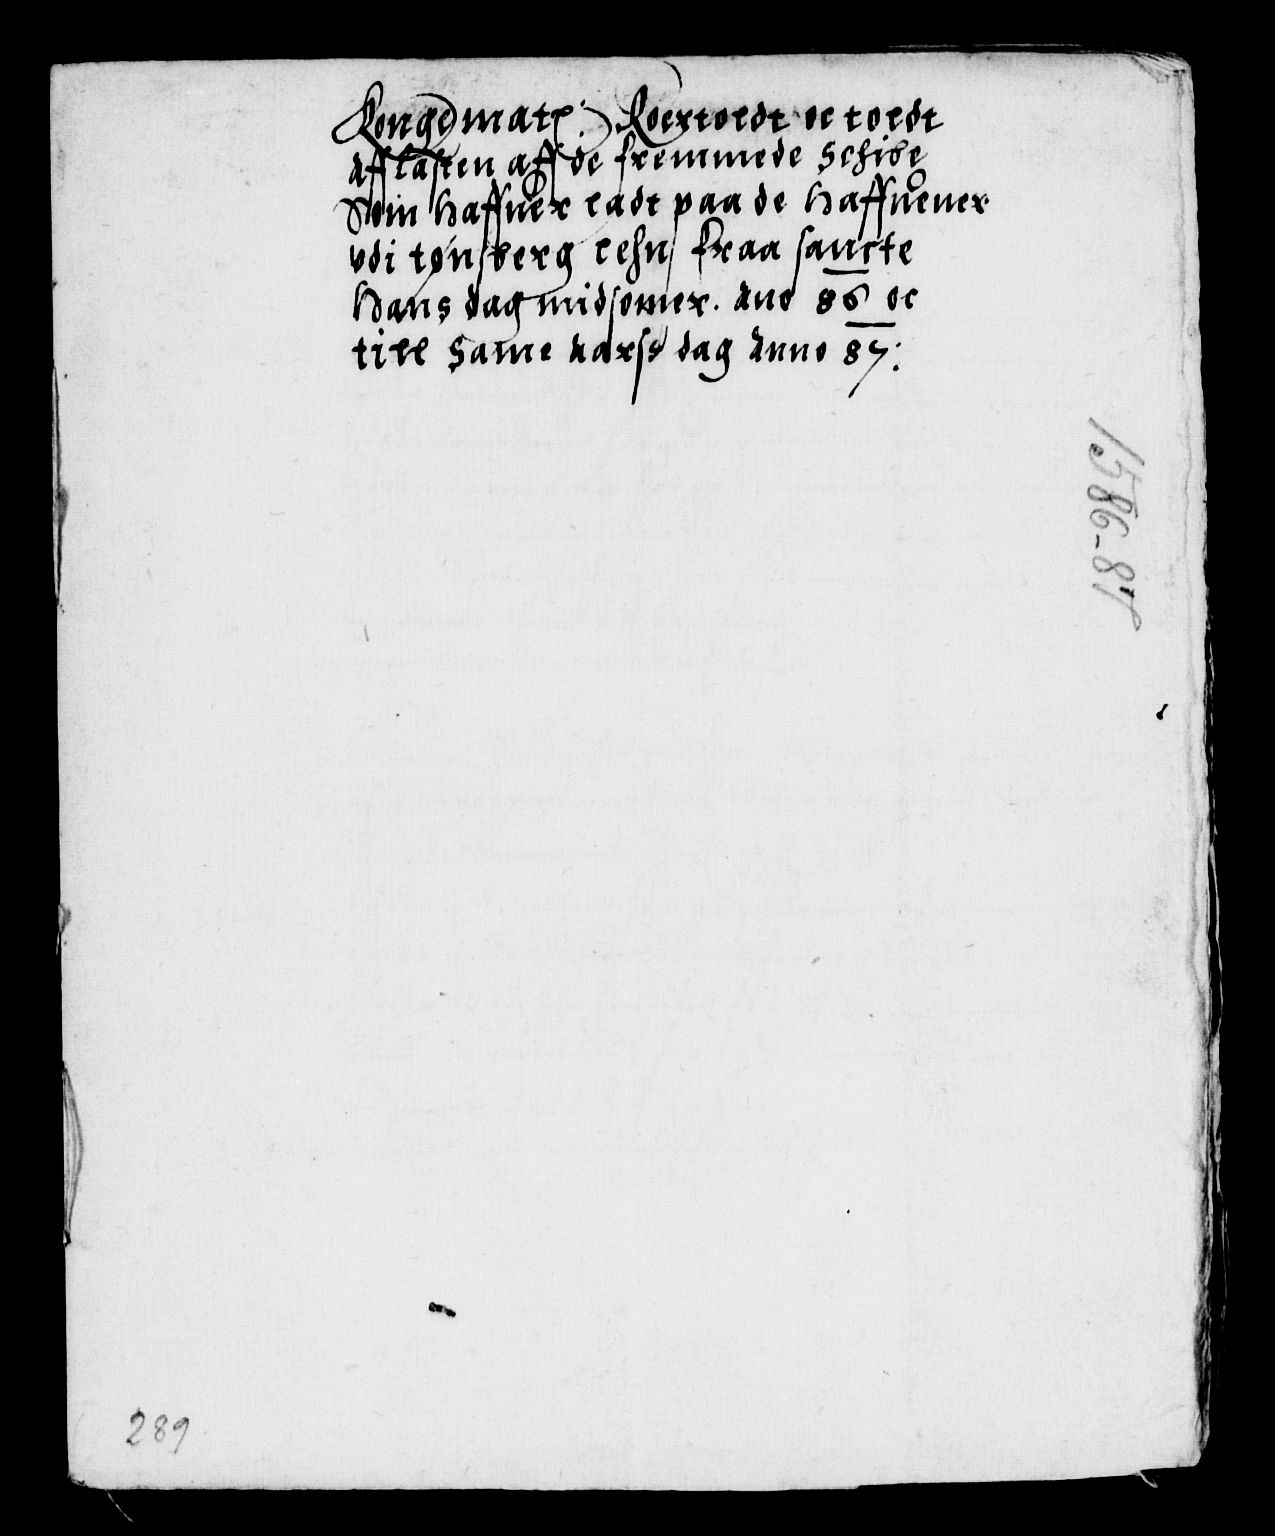 Konge matz: Roertoldt oc toldt
aff lasten aff de fremmede Schibe
Som haffuer ladt paa de Haffnener
vdi tønsberg lehn fraa sancte
Hans dag midsomer. Ano 86 oc
till Same aarss dag Anno 87:
1586-87
289